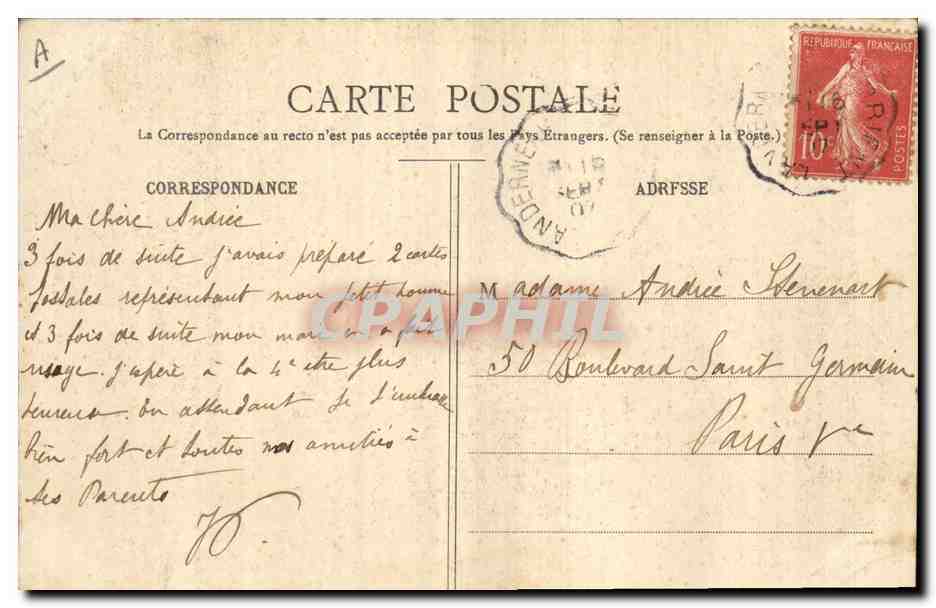 A
RÉPUBLIQUE FRANÇAISE
10 c
POSTES
CARTE POSTALE
La Correspondance au recto n'est pas acceptée par tous les Pays Étrangers. (Se renseigner à la Poste.)
CORRESPONDANCE
ADRESSE
Ma chère Andrée
3 fois de suite j'avais préparé 2 cartes
postales représentant mon petit homme
et 3 fois de suite mon mari en a fait
usage. J'espère à la 4e être plus
heureuse. En attendant je t'embrasse
bien fort et toutes nos amitiés à
tes Parents
Madame Andrée
50 Boulevard Saint Germain
Paris Ve
ANDERNE
CPAPHIL